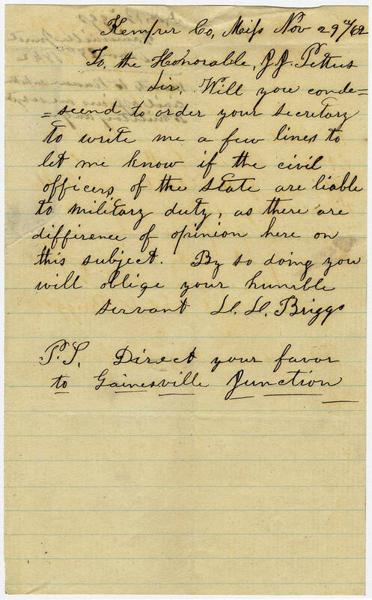 Kemper Co, Miss Nov 29th/62
To, the Honorable, J. J. Pettus
Sir, Will you conde=
=seend to order your secretary
to write me a few lines to
let me know if the civil
officers of the state are liable
to military duty, as there are
diffirence of opinion here on
this subject. By so doing you
will oblige your humble
servant L. L. Briggs
P.S. Direct your favor
to Gainesville Junction